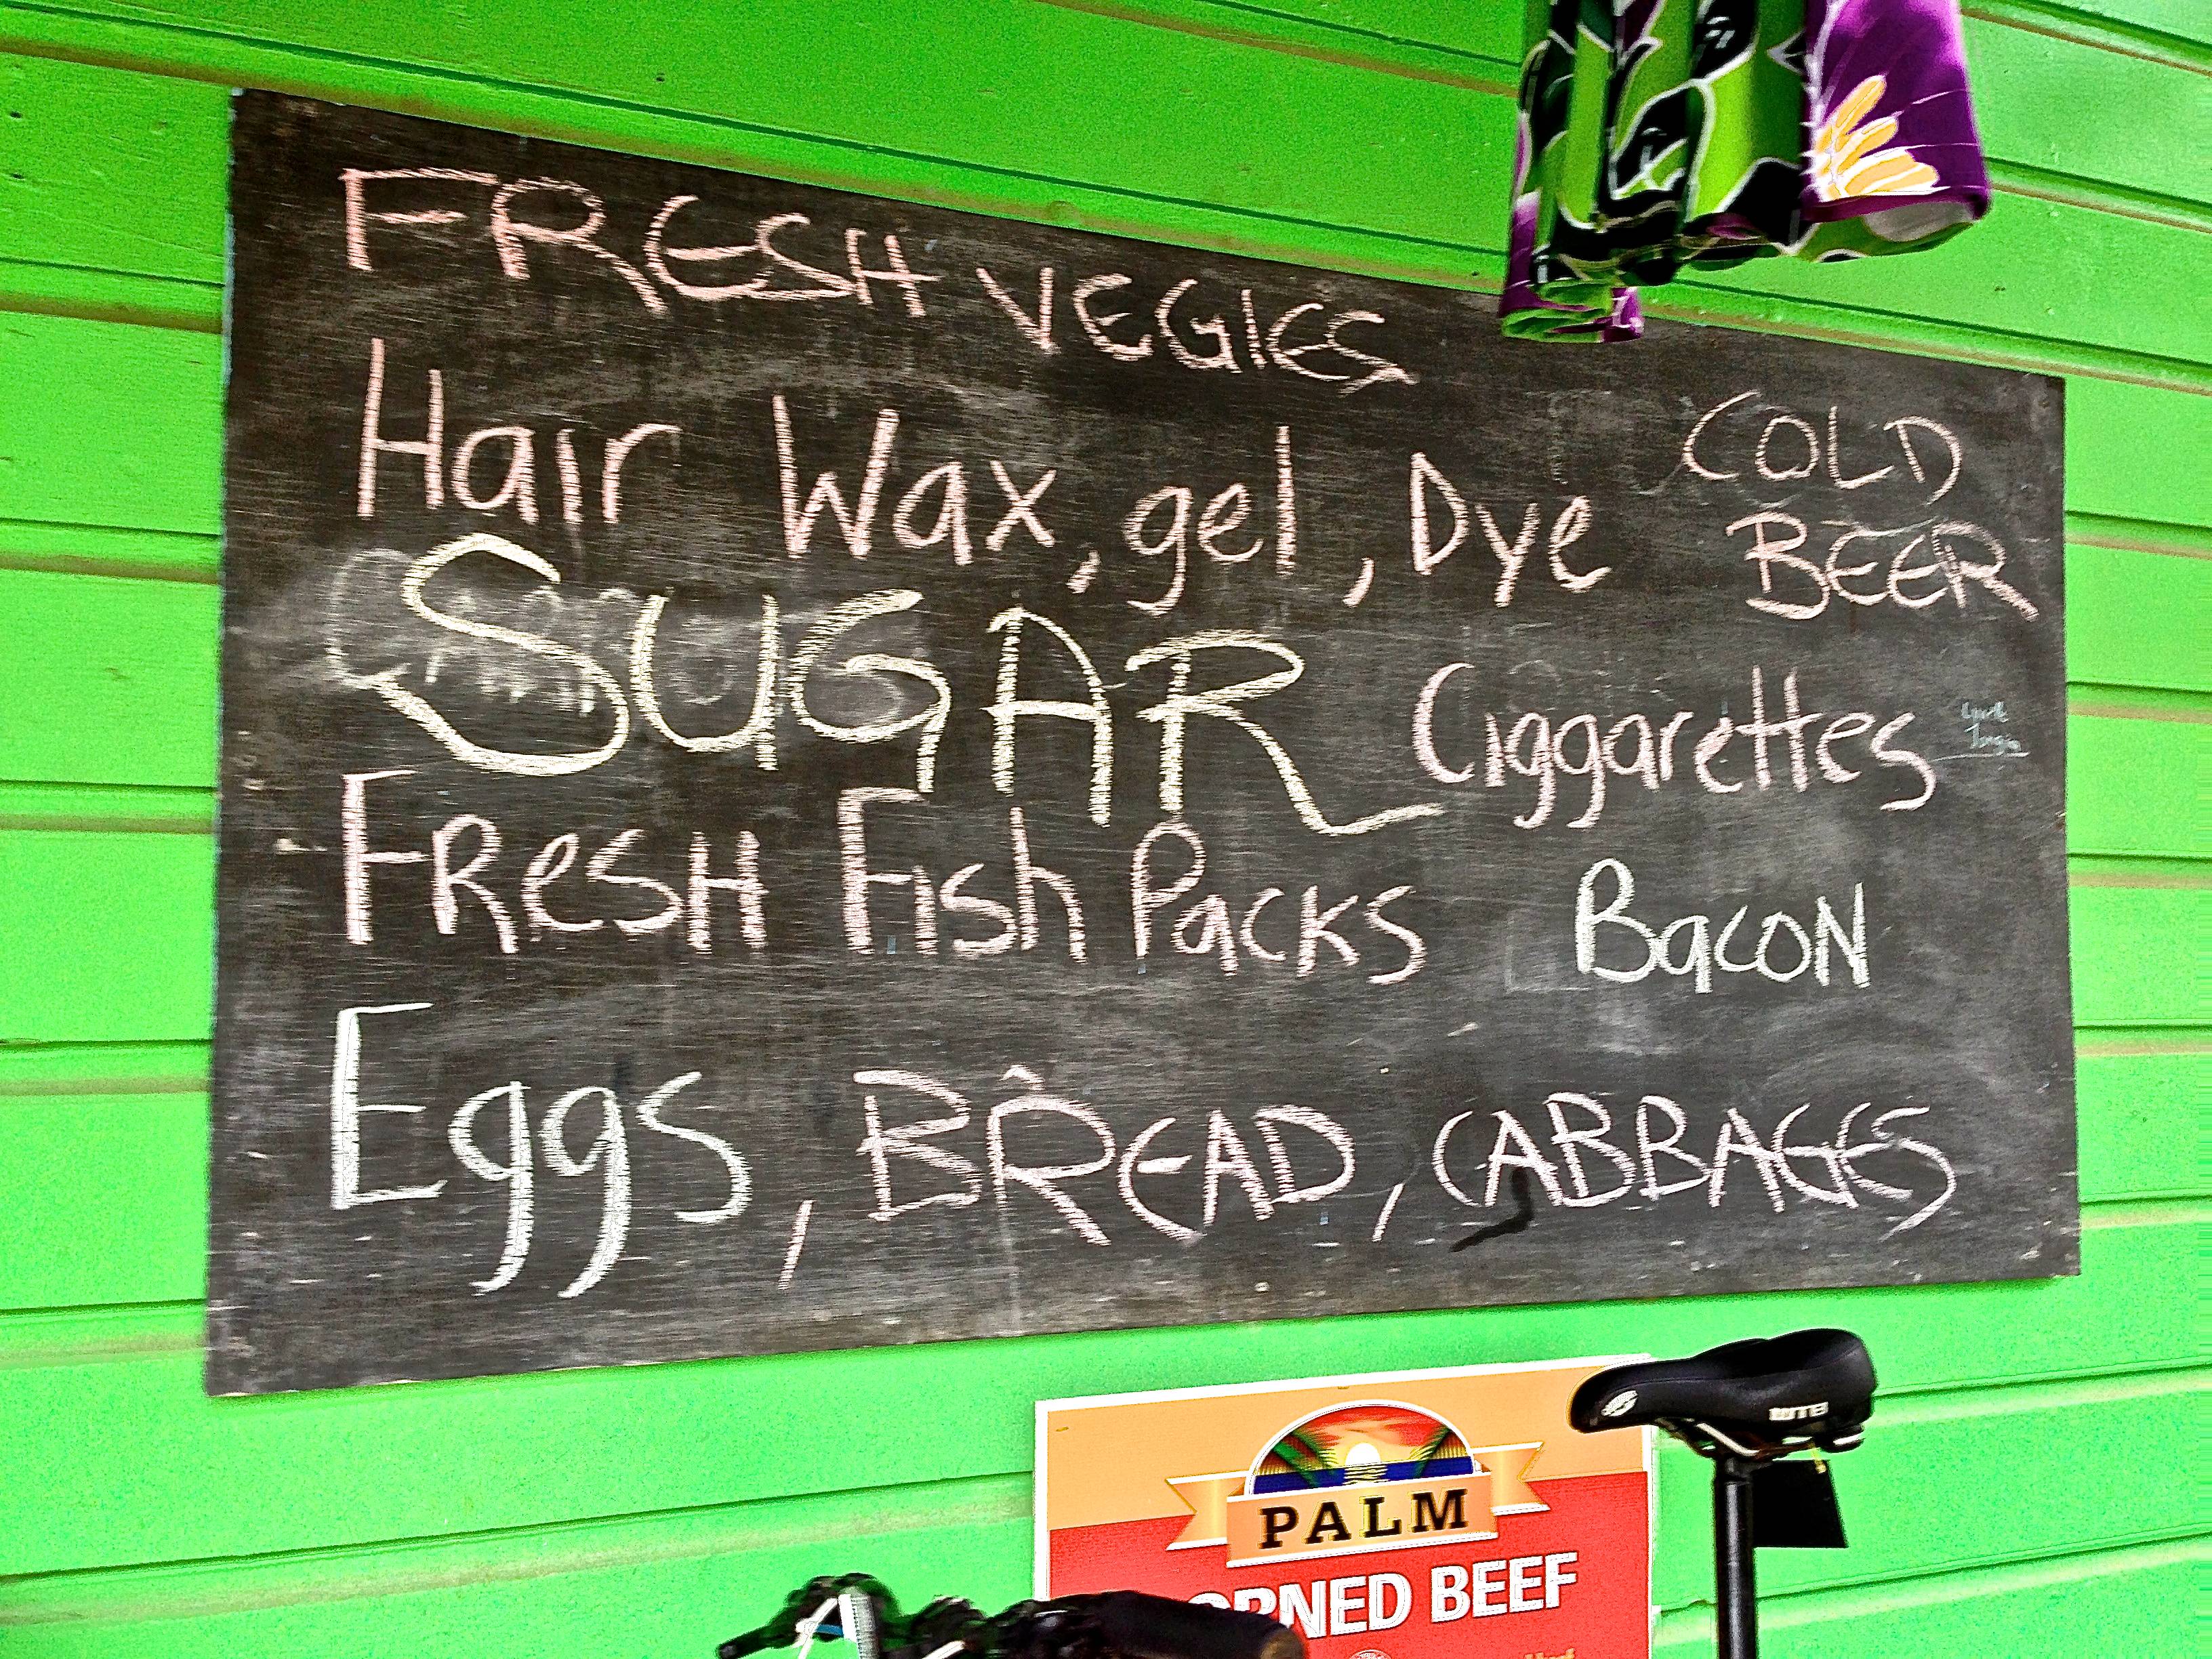 FRESH VEGIES
Hair Wax, gel, Dye
COLD
BEER
SUGAR
Ciggarettes
FResH Fish Packs
BacoN
Eggs, BREAD, CABBAGES
PALM
ORNED BEEF
WTB